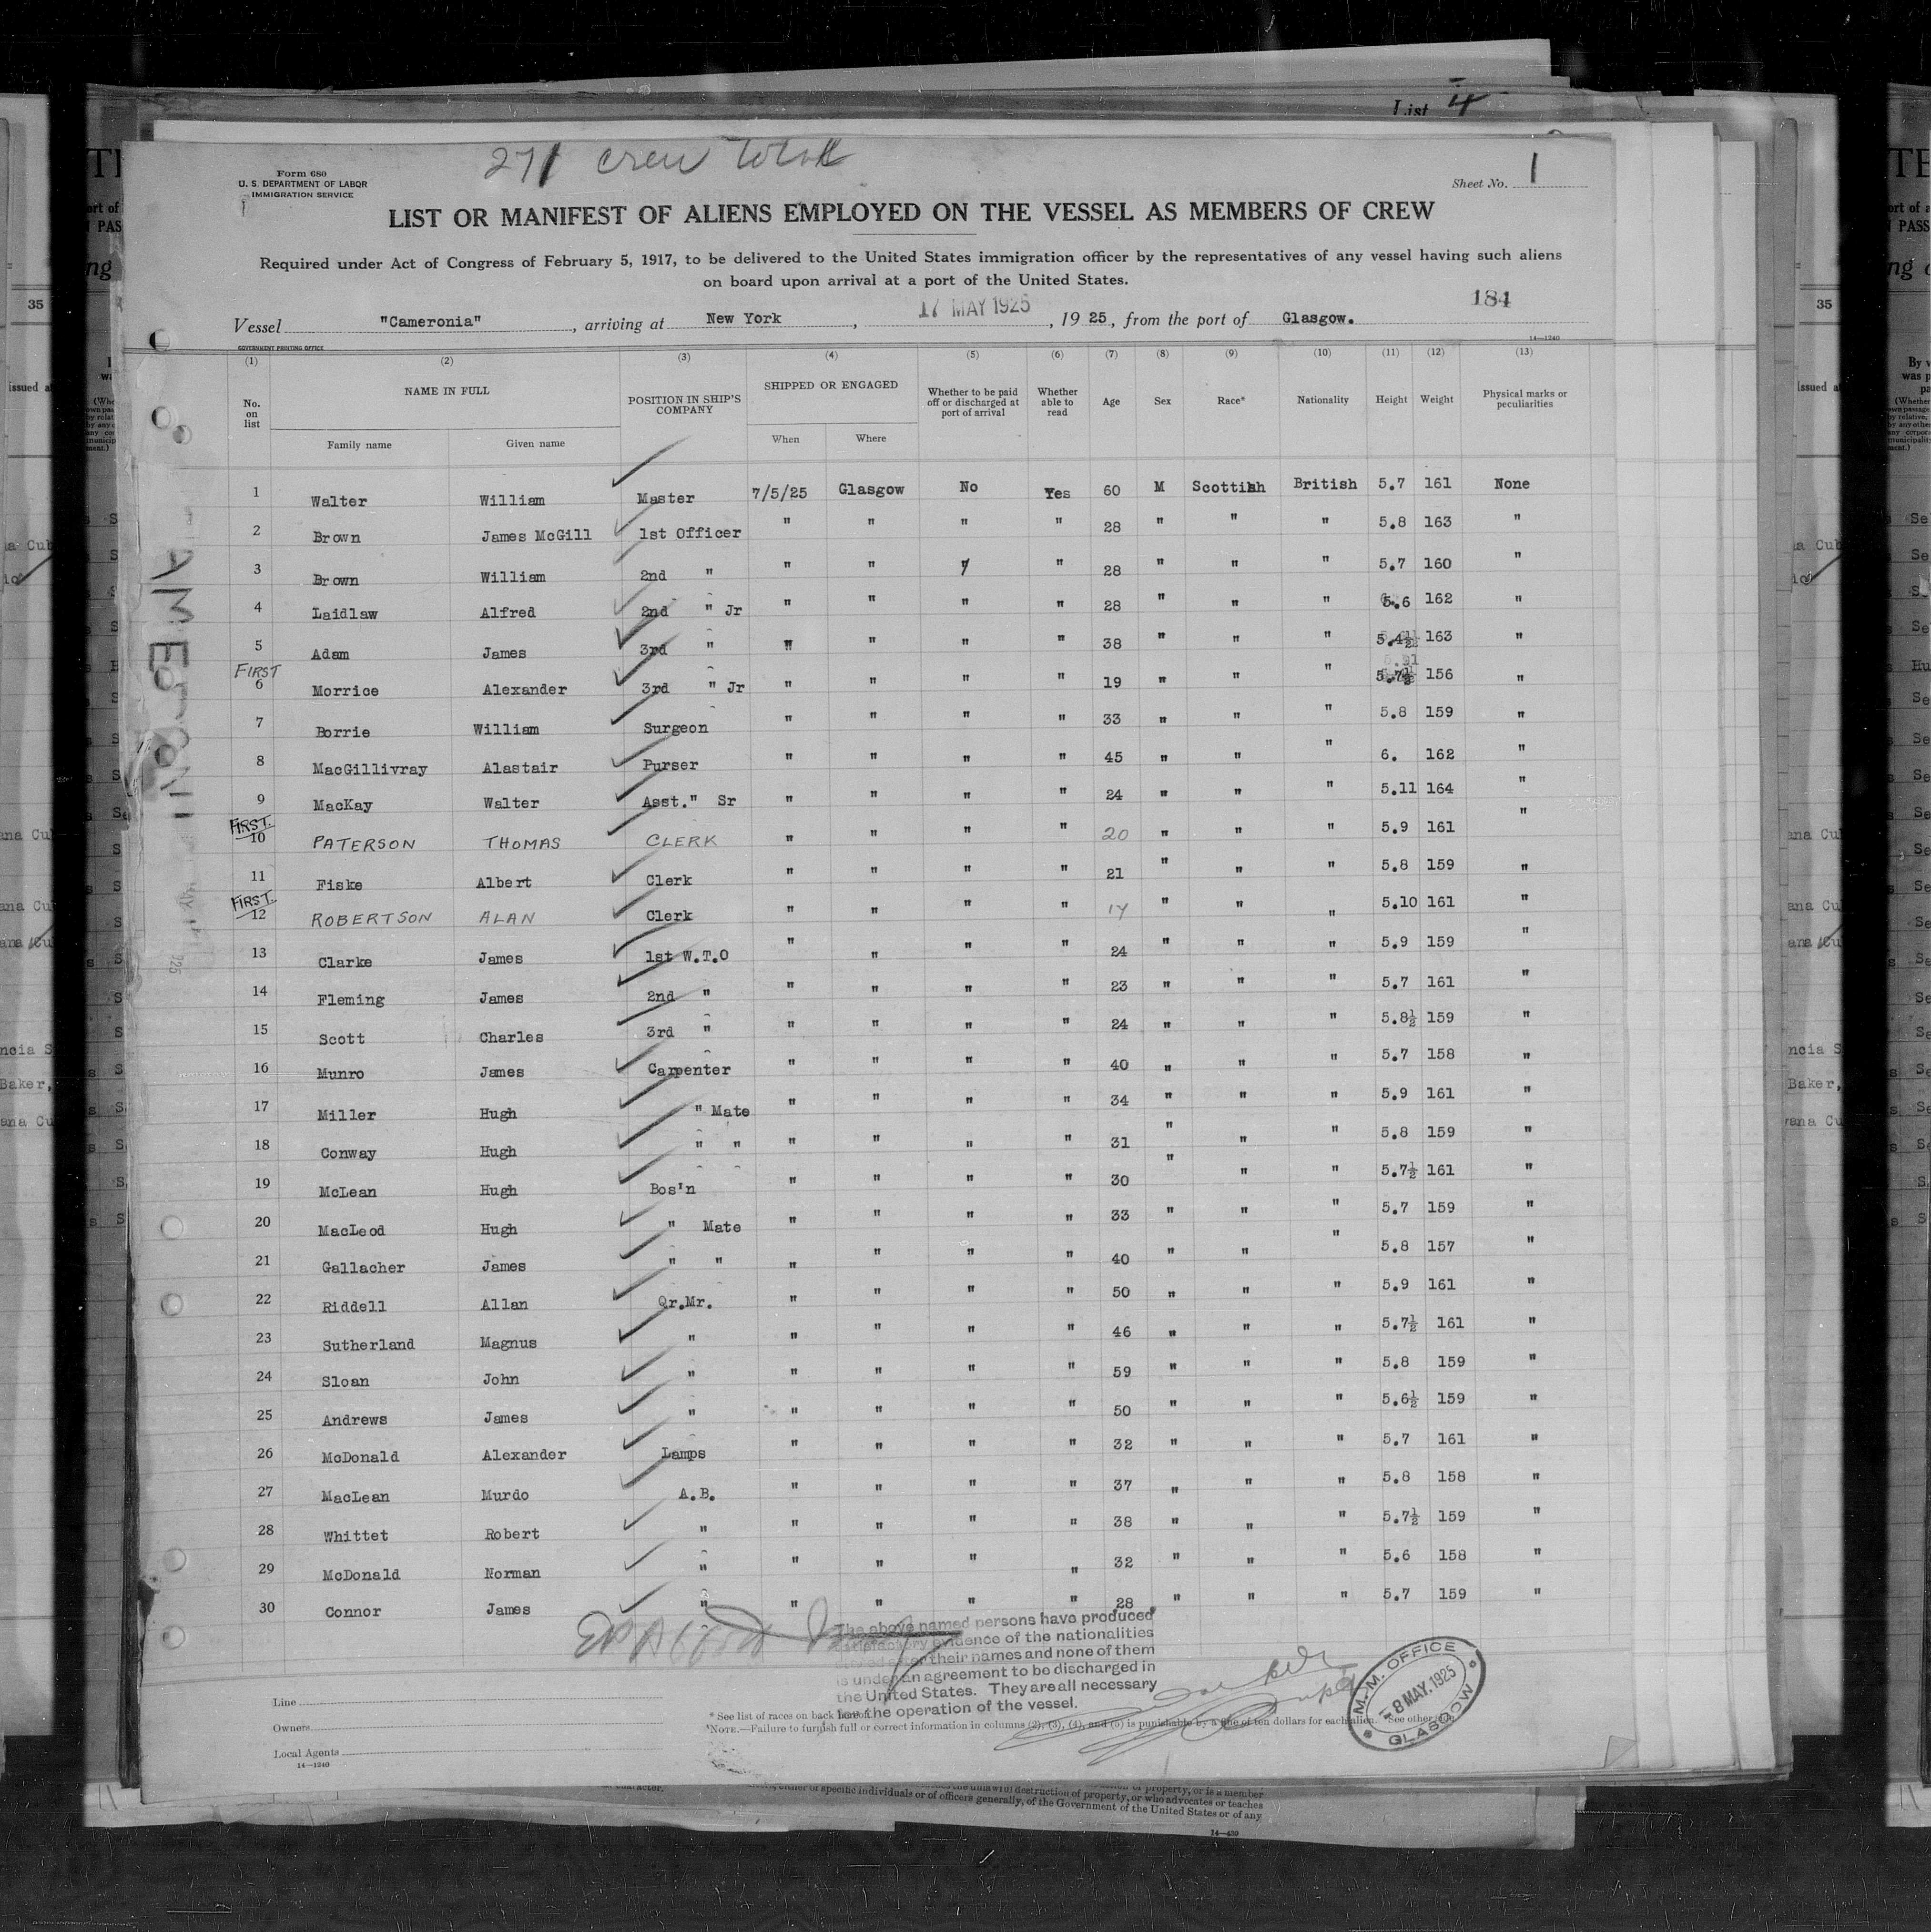 List 4
271 crew total
Form 680
U. S. DEPARTMENT OF LABOR
IMMIGRATION SERVICE
Sheet No. 1
LIST OR MANIFEST OF ALIENS EMPLOYED ON THE VESSEL AS MEMBERS OF CREW
Required under Act of Congress of February 5, 1917, to be delivered to the United States immigration officer by the representatives of any vessel having such aliens
on board upon arrival at a port of the United States.
184
Vessel "Cameronia", arriving at New York, 17 MAY 1925, 1925, from the port of Glasgow.
GOVERNMENT PRINTING OFFICE 14—1240
(1) (2) (3) (4) (5) (6) (7) (8) (9) (10) (11) (12) (13)
No. on list NAME IN FULL POSITION IN SHIP'S COMPANY SHIPPED OR ENGAGED Whether to be paid off or discharged at port of arrival Whether able to read Age Sex Race* Nationality Height Weight Physical marks or peculiarities
Family name Given name When Where
1 Walter William Master 7/5/25 Glasgow No Yes 60 M Scottish British 5.7 161 None
2 Brown James McGill 1st Officer " " " " 28 " " " 5.8 163 "
3 Brown William 2nd " " " " " 28 " " " 5.7 160 "
4 Laidlaw Alfred 2nd " Jr " " " " 28 " " " 5.6 162 "
5 Adam James 3rd " " " " " 38 " " " 5.4½ 163 "
FIRST
6 Morrice Alexander 3rd " Jr " " " " 19 " " " 5.7½ 156 "
7 Borrie William Surgeon " " " " 33 " " " 5.8 159 "
8 MacGillivray Alastair Purser " " " " 45 " " " 6. 162 "
9 MacKay Walter Asst." Sr " " " " 24 " " " 5.11 164 "
FIRST.
10 PATERSON THOMAS CLERK " " " " 20 " " " 5.9 161 "
11 Fiske Albert Clerk " " " " 21 " " " 5.8 159 "
FIRST.
12 ROBERTSON ALAN Clerk " " " " 17 " " " 5.10 161 "
13 Clarke James 1st W.T.O " " " " 24 " " " 5.9 159 "
14 Fleming James 2nd " " " " " 23 " " " 5.7 161 "
15 Scott Charles 3rd " " " " " 24 " " " 5.8½ 159 "
16 Munro James Carpenter " " " " 40 " " " 5.7 158 "
17 Miller Hugh " Mate " " " " 34 " " " 5.9 161 "
18 Conway Hugh " " " " " " 31 " " " 5.8 159 "
19 McLean Hugh Bos'n " " " " 30 " " " 5.7½ 161 "
20 MacLeod Hugh " Mate " " " " 33 " " " 5.7 159 "
21 Gallacher James " " " " " " 40 " " " 5.8 157 "
22 Riddell Allan Qr.Mr. " " " " 50 " " " 5.9 161 "
23 Sutherland Magnus " " " " " 46 " " " 5.7½ 161 "
24 Sloan John " " " " " 59 " " " 5.8 159 "
25 Andrews James " " " " " 50 " " " 5.6½ 159 "
26 McDonald Alexander Lamps " " " " 32 " " " 5.7 161 "
27 MacLean Murdo A.B. " " " " 37 " " " 5.8 158 "
28 Whittet Robert " " " " " 38 " " " 5.7½ 159 "
29 McDonald Norman " " " " " 32 " " " 5.6 158 "
30 Connor James " " " " " 28 " " " 5.7 159 "
The above named persons have produced
satisfactory evidence of the nationalities
stated after their names and none of them
is under an agreement to be discharged in
the United States. They are all necessary
for the operation of the vessel.
M. M. OFFICE
8 MAY. 1925
GLASGOW
Line
Owners
Local Agents
14—1240
* See list of races on back hereof.
NOTE.—Failure to furnish full or correct information in columns (2), (3), (4), and (5) is punishable by a fine of ten dollars for each alien. See other side.
either of specific individuals or of officers generally, of the Government of the United States or of any
14—430